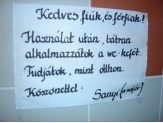 Kedves fiúk, és férfiak!
Használat után, bátran
alkalmazzátok a wc-kefét
Tudjátok, mint otthon.
Köszönettel: Sanyi (a nyúl)!